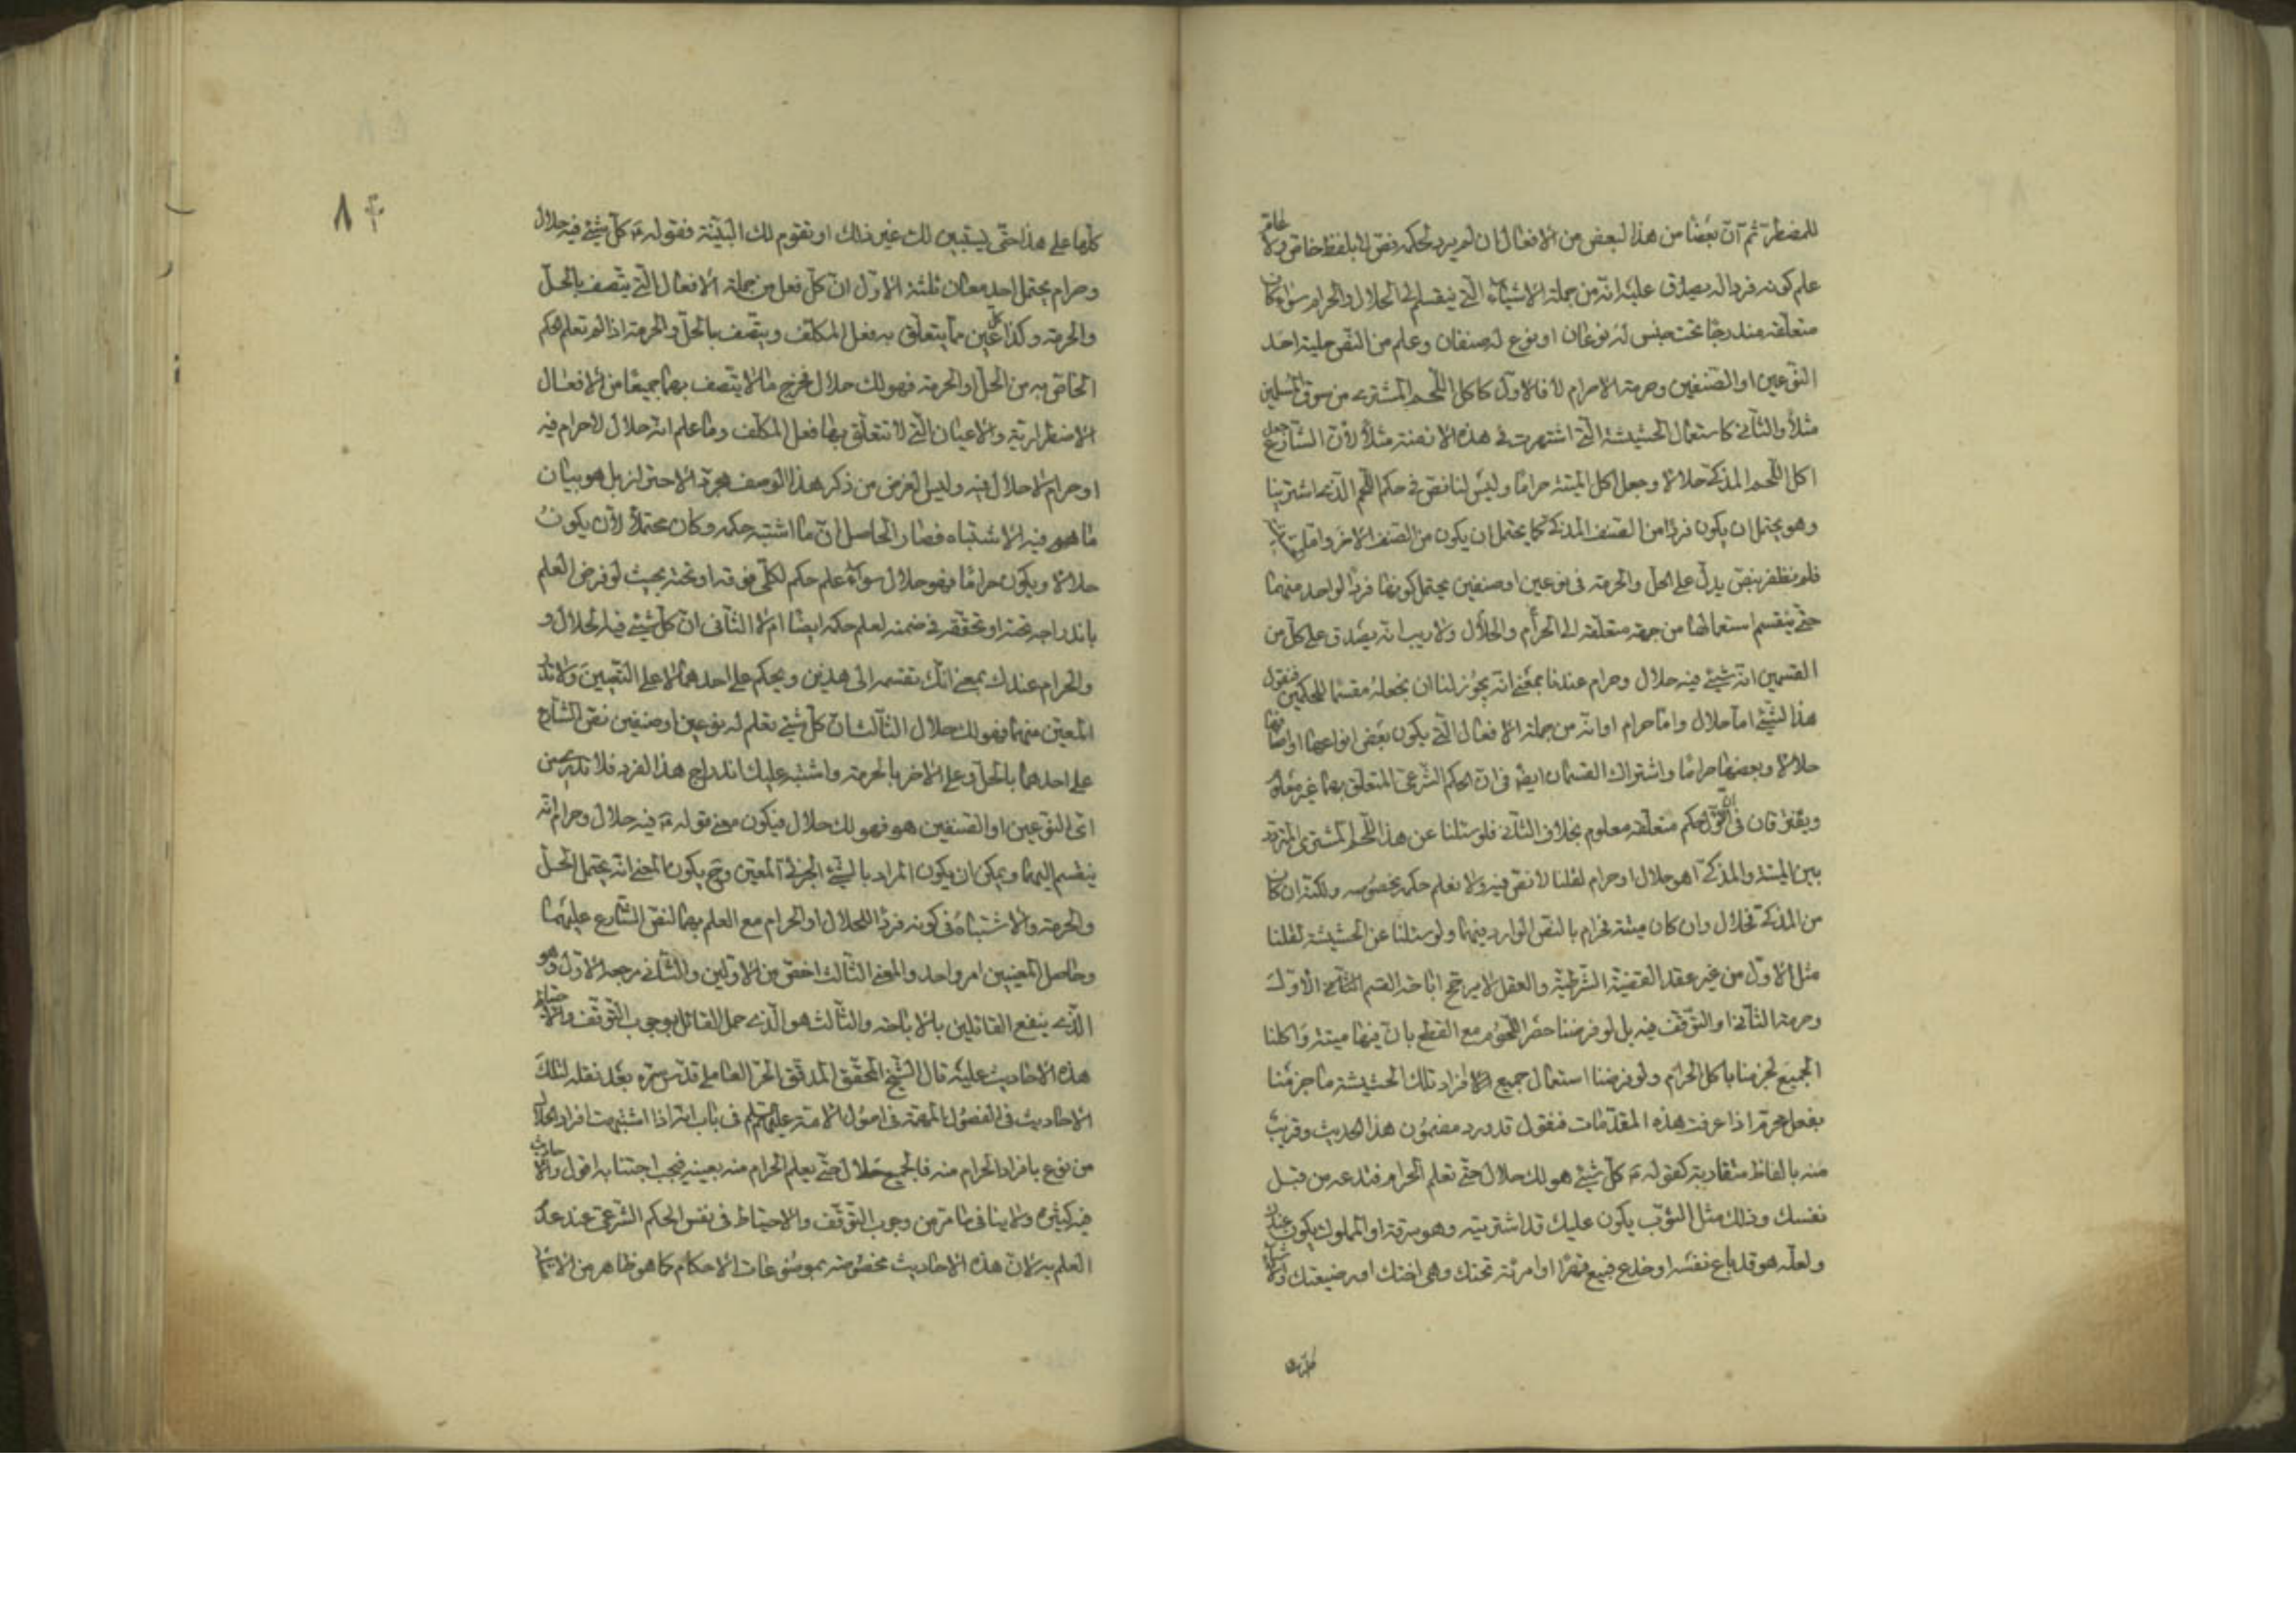 للمضطر ثم ان بعضا من هذا البعض من الافعال ان لم يرد لحكمه نص لا بلفظ خاص ولا عام
علم كونه فردا له يصدق عليه انه من جملة الاشياء التي ينقسم الى الحلال والحرام سواء كان
متعلقه مندرجا تحت جنس له نوعان او نوع له صنفان وعلم من النص حلية احد
النوعين او الصنفين وحرمة الاخر ام لا فالاول كاكل اللحم المشترى من سوق المسلمين
مثلا والثاني كاستعمال الحشيشة التي اشتهرت في هذه الازمنة مثلا لان الشارع جعل
اكل اللحم المذكى حلالا وجعل اكل الميتة حراما وليس لنا نص في حكم اللحم الذي اشترينا
وهو يحتمل ان يكون فردا من الصنف المذكى كما يحتمل ان يكون من الصنف الاخر واما
فلم نظفر بنص يدل على الحل والحرمة في نوعين او صنفين يحتمل كونها فردا لواحد منهما
حتى ينقسم استعمالها من جهة متعلقه الى الحرام والحلال ولا ريب انه يصدق على كل من
القسمين انه شيئ فيه حلال وحرام عندنا بمعنى انه يجوز لنا ان نجعله مقسما للحكمين فنقول
هذا الشيئ اما حلال واما حرام او انه من جملة الافعال التي يكون بعض انواعها او اصنافها
حلالا وبعضها حراما واشتراك القسمان ايضا في ان الحكم الشرعي المتعلق بهما غير معلوم
ويفترقان في ان الاول حكم متعلقه معلوم بخلاف الثاني فلو سئلنا عن هذا اللحم المشترى المتردد
بين الميتة والمذكى اهو حلال او حرام لقلنا لا نص فيه ولا نعلم حكمه بخصوصه ولكنه ان كان
من المذكى فحلال وان كان ميتة فحرام بالنص الوارد فيهما ولو سئلنا عن الحشيشة لقلنا
مثل الاول من غير عقد القضية الشرطية والعقل لا يرجح اباحة القسم الاول
وحرمة الثاني او التوقف فيه بل لو فرضنا حضر اللحوم مع القطع بان فيها ميتة واكلنا
الجميع لجزمنا باكل الحرام ولو فرضنا استعمال جميع افراد تلك الحشيشة ما جزمنا
بفعل محرم اذا عرفت هذه المقدمات فنقول قد ورد مضمون هذا الحديث وقريب
منه بالفاظ متقاربة كقوله ع كل شيئ هو لك حلال حتى تعلم الحرام فتدعه من قبل
نفسك وذلك مثل الثوب يكون عليك قد اشتريته وهو سرقة او المملوك يكون عندك
ولعله هو قد باع نفسه او خدع فبيع قهرا او امرئة تحتك وهي اختك او رضيعتك والاشياء
كلها على
۸۴
كلها على هذا حتى يستبين لك غير ذلك او تقوم لك البينة فقوله ع كل شيئ فيه حلال
وحرام يحتمل احد معان ثلثة الاول ان كل فعل من جملة الافعال التي يتصف بالحل
والحرمة وكذا كل عين مما يتعلق به فعل المكلف ويتصف بالحل والحرمة اذا لم تعلم الحكم
الخاص به من الحل او الحرمة فهو لك حلال فخرج ما لا يتصف بهما جميعا من الافعال
الاضطرارية والاعيان التي لا تتعلق بها فعل المكلف وما علم انه حلال لا حرام فيه
او حرام لا حلال فيه وليس الغرض من ذكر هذا الوصف مجرد الاحتراز بل هو بيان
ما هو فيه الاشتباه فصار الحاصل ان ما اشتبه حكمه وكان محتملا لان يكون
حلالا ويكون حراما فهو حلال سواء علم حكم لكلى فوقه او تحته بحيث لو فرض العلم
باندراجه تحته او تحققه في ضمنه لعلم حكمه ايضا ام لا الثاني ان كل شيئ فيه الحلال و
والحرام عندك بمعنى انك تقسمه الى هذين ويحكم على احدهما لا على التعيين ولا تدري
المعين منهما فهو لك حلال الثالث ان كل شيئ تعلم له نوعين او صنفين نص الشارع
على احدهما بالحل وعلى الاخر بالحرمة واشتبه عليك اندراج هذا الفرد فلا تدري من
اي النوعين او الصنفين هو فهو لك حلال فيكون معنى قوله ع فيه حلال وحرام انه
ينقسم اليهما ويمكن ان يكون المراد بالشيئ الجزئي المعين وح يكون المعنى انه يحتمل الحل
والحرمة والاشتباه في كونه فردا للحلال او الحرام مع العلم بهما لنص الشارع عليهما
وحاصل المعنيين امر واحد والمعنى الثالث اخص من الاولين والثاني مرجعه الاول وهو
الذي ينفع القائلين بالاباحة والثالث هو الذي حمل القائل بوجوب التوقف والاحتياط
هذه الاحاديث عليه قال الشيخ المحقق المدقق الحر العاملي قدس سره بعد نقله لتلك
الاحاديث في الفصول المهمة في اصول الائمة عليهم السلم في باب انه اذا اشتبهت افراد الحلال
من نوع بافراد الحرام منه فالجميع حلال حتى يعلم الحرام منه بعينه فيجب اجتنابه اقول والاحاديث
فيه كثيرة ولا ينافى ما مر من وجوب التوقف والاحتياط في نفس الحكم الشرعي عند عدم
العلم به لان هذه الاحاديث مخصوصة بموضوعات الاحكام كما هو ظاهر من الامثلة